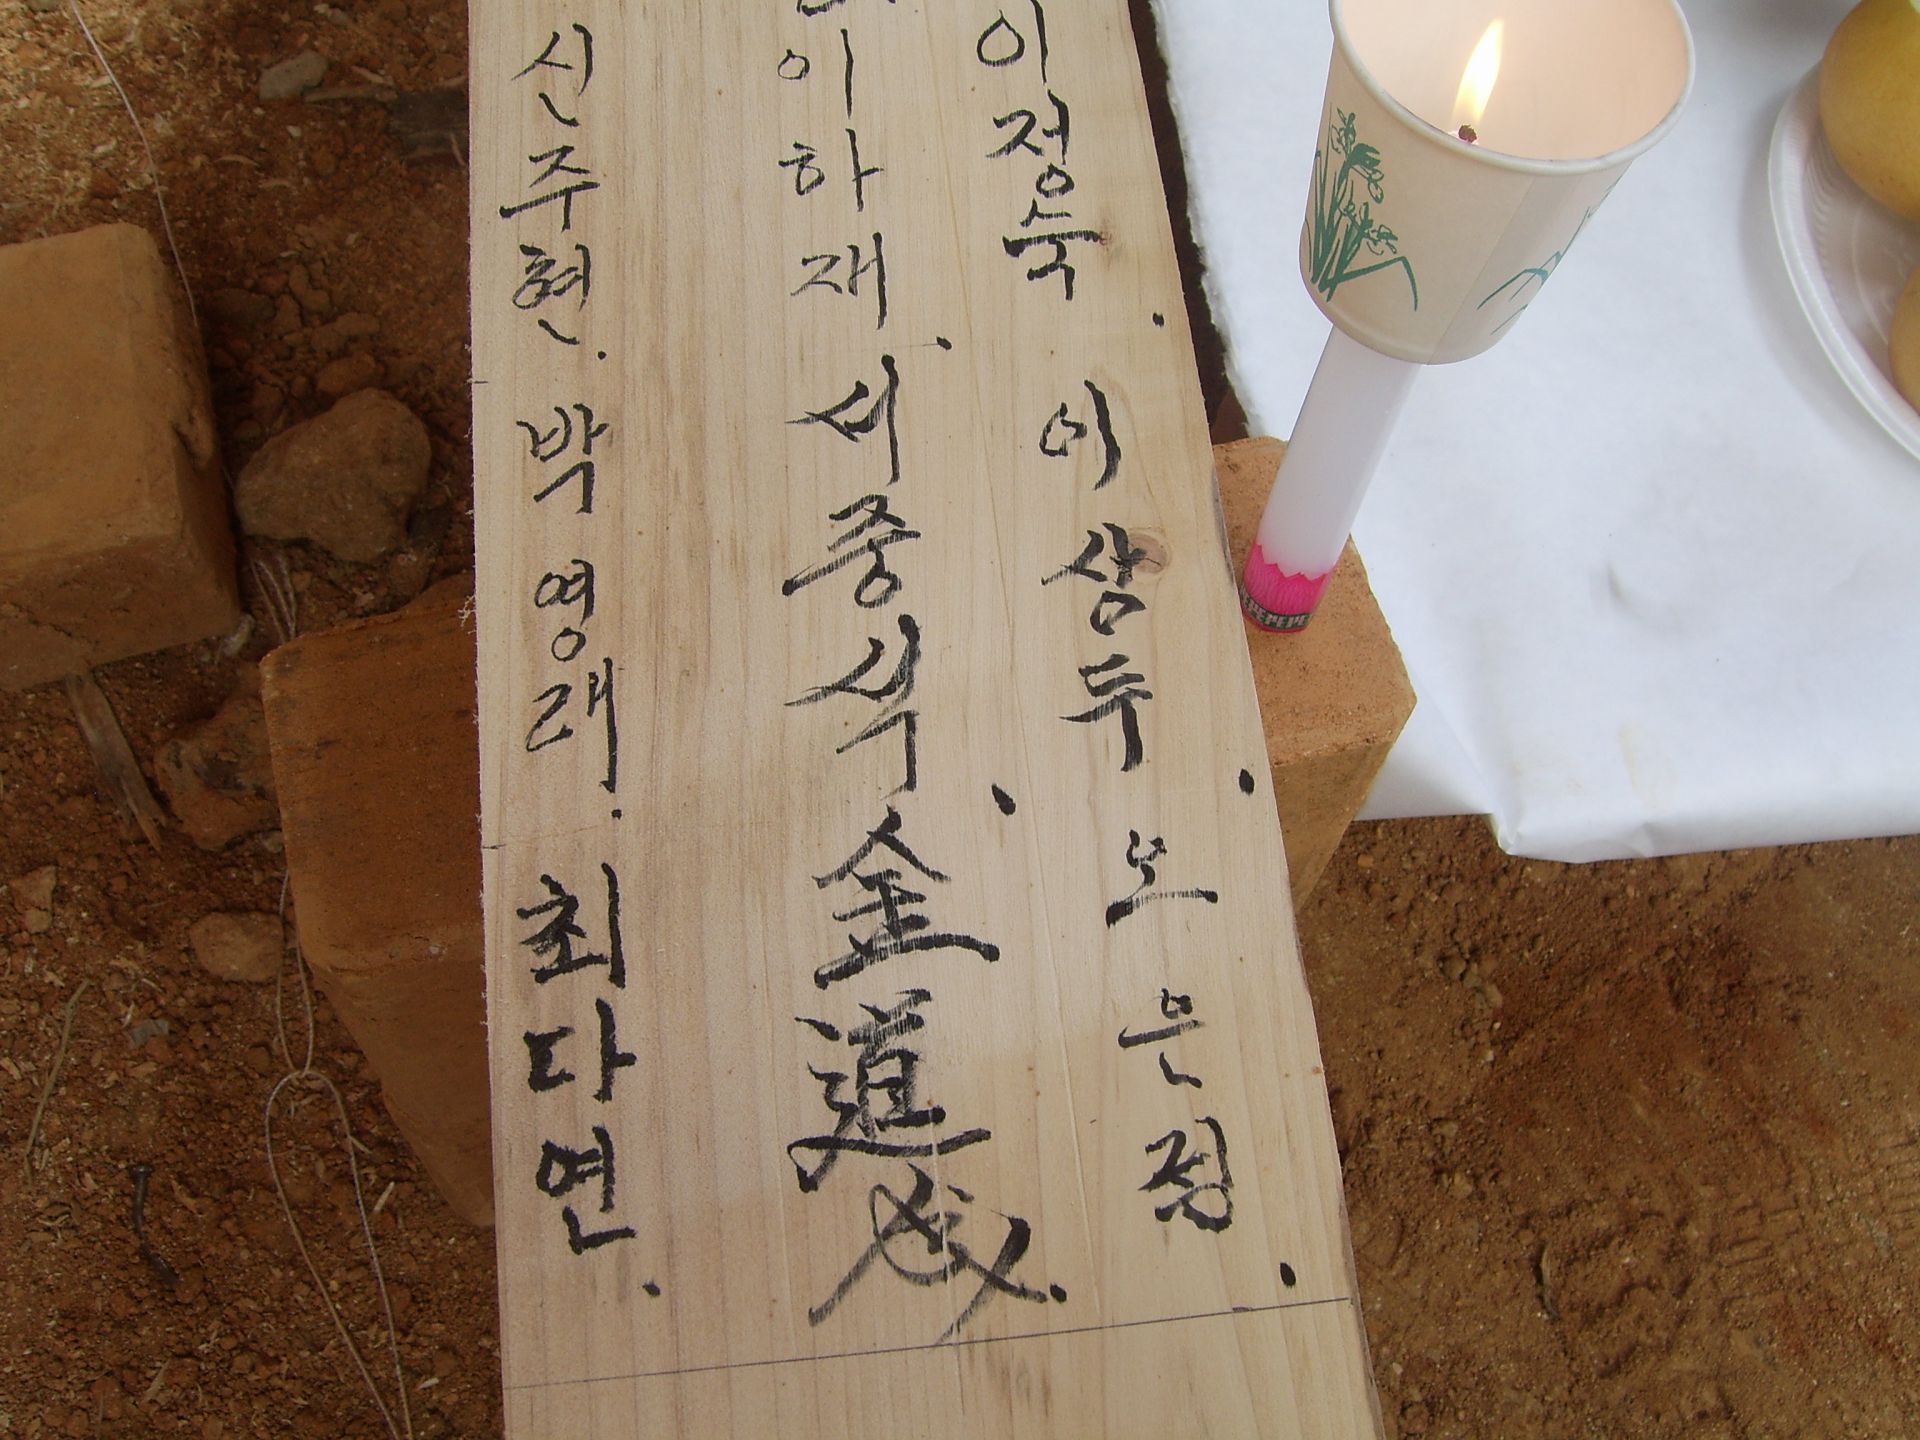 이정숙. 이상두. 노은정.
이하재. 서중식. 金道成.
신주현. 박영래. 최다연.